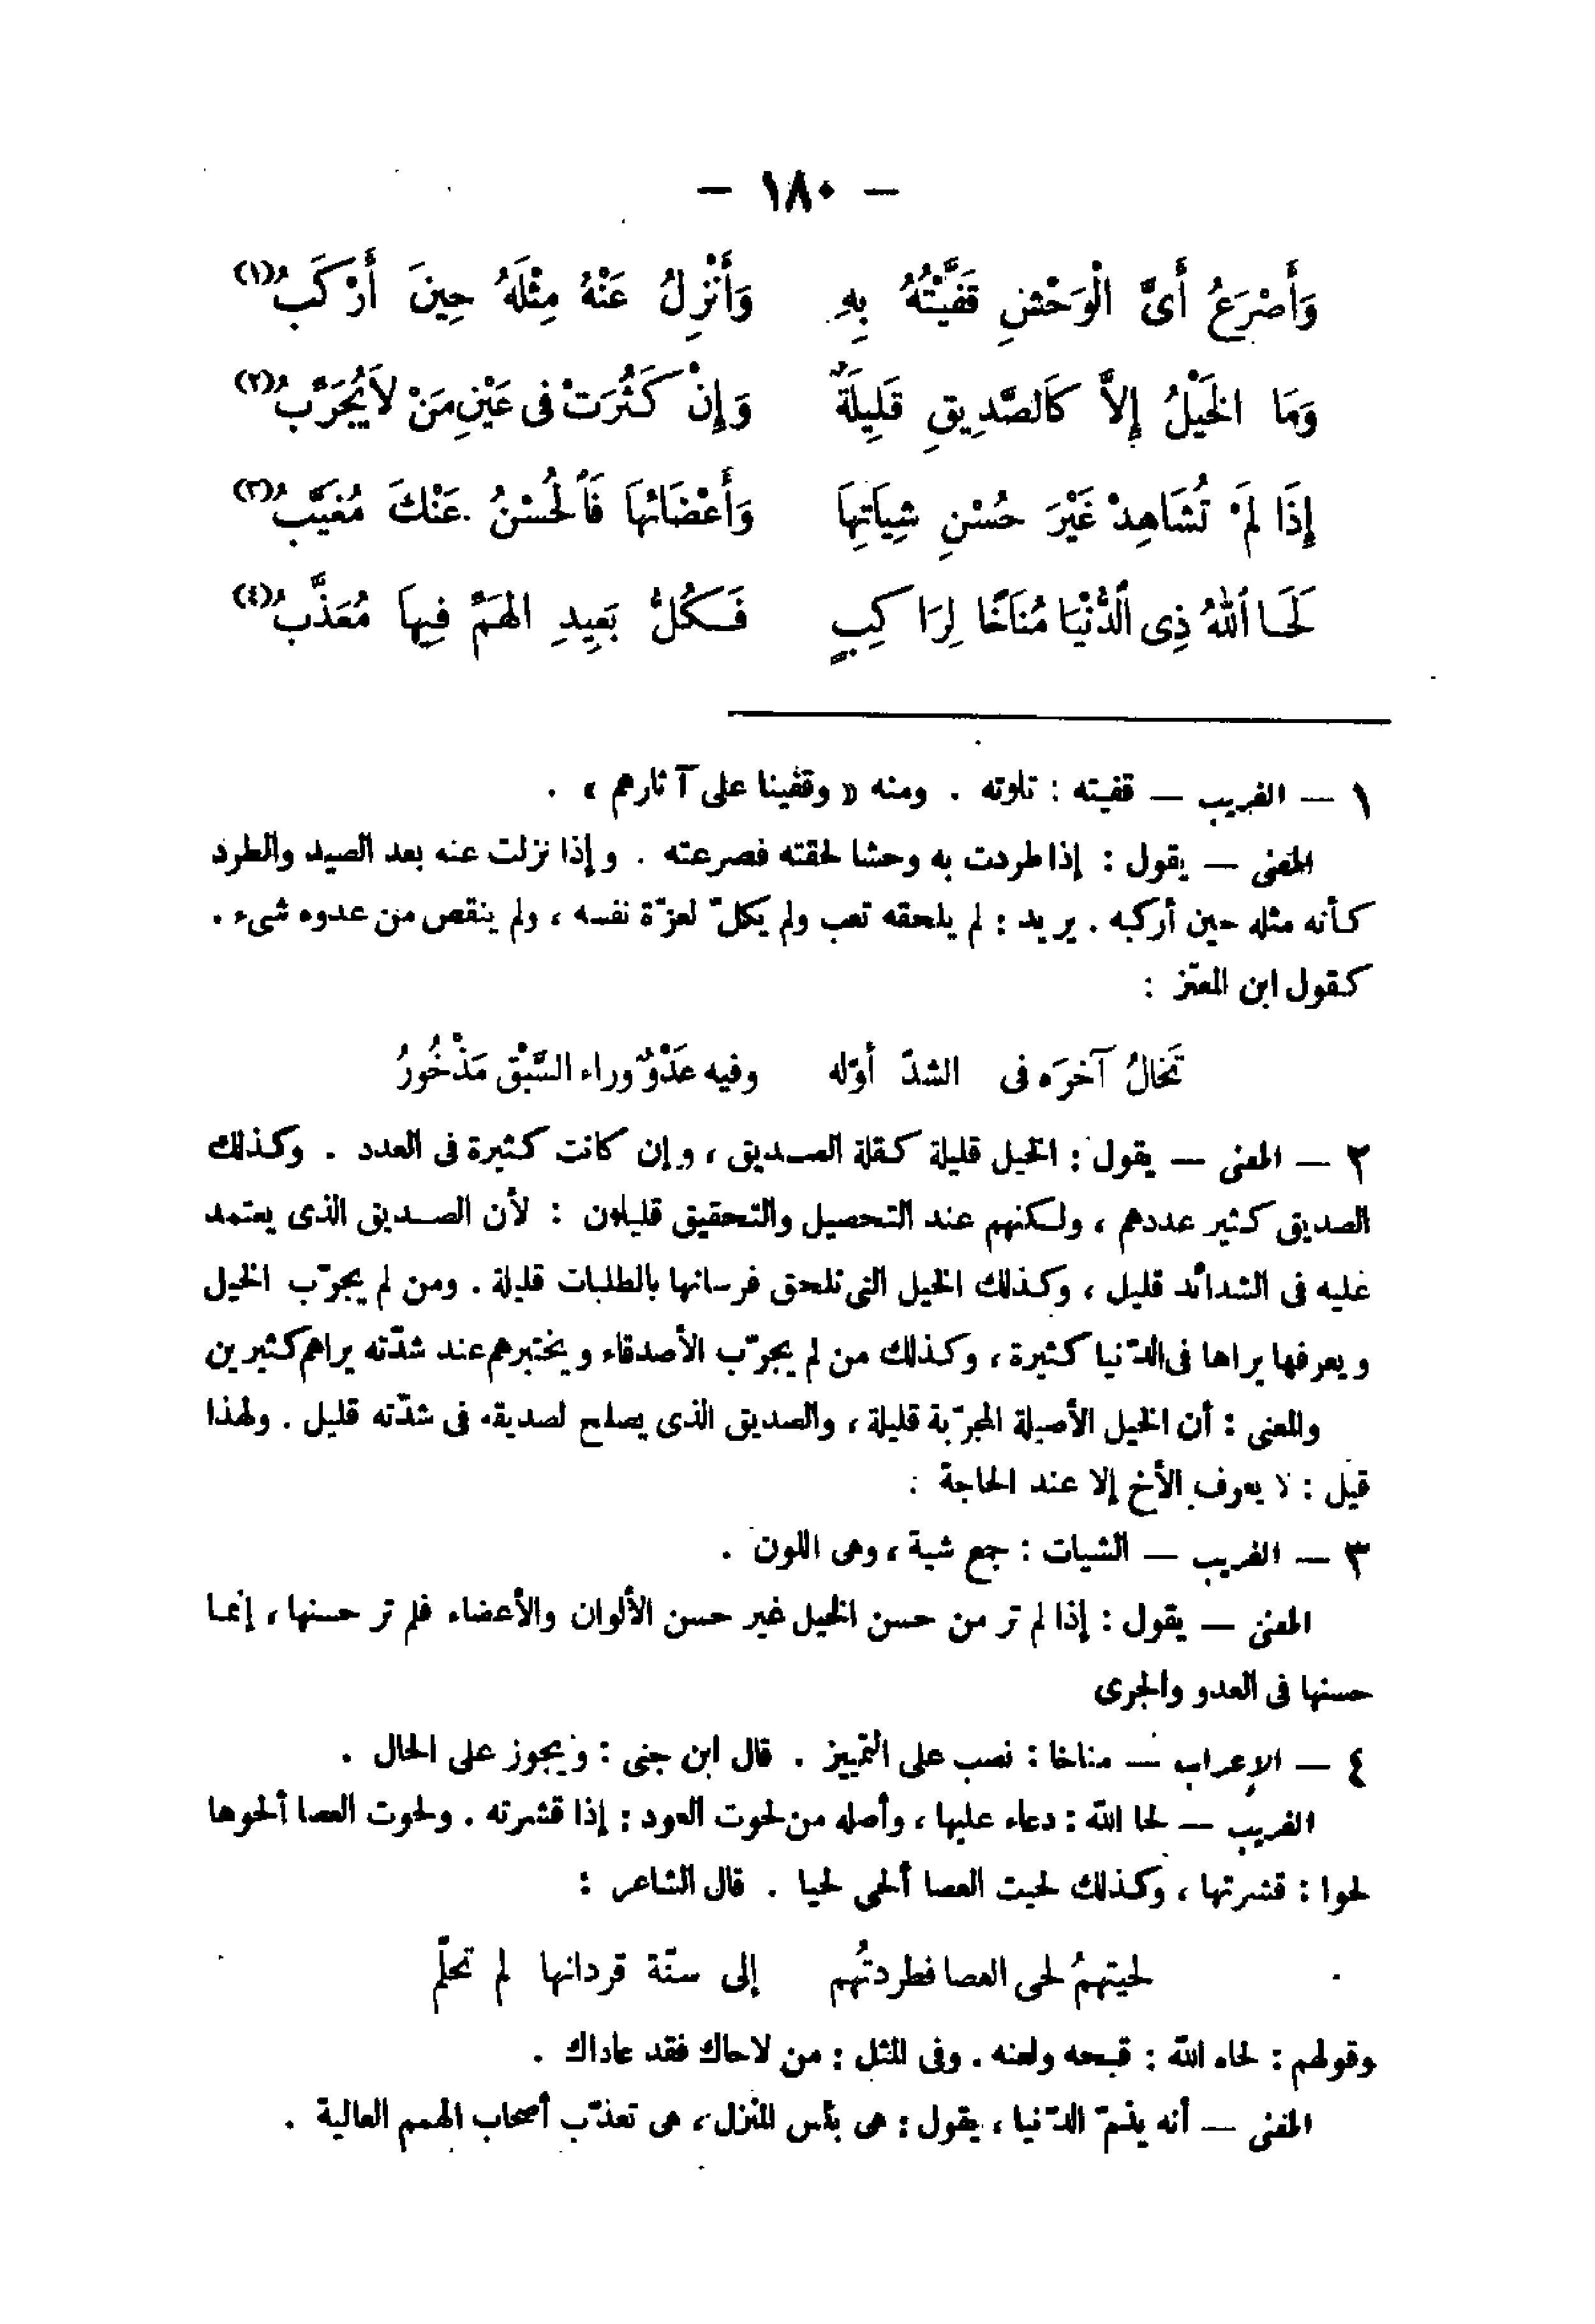 — ١٨٠ —
وَأَصْرَعُ أَىَّ الْوَحْشِ قَفَّيْتُهُ بِهِ وَأَنْزِلُ عَنْهُ مِثْلَهُ حِينَ أَرْكَبُ(١)
وَمَا الْخَيْلُ إِلاَّ كَالصَّدِيقِ قَلِيلَةٌ وَإِنْ كَثُرَتْ فى عَيْنِ مَنْ لاَ يُجَرِّبُ(٢)
إِذَا لَمْ تُشَاهِدْ غَيْرَ حُسْنِ شِيَاتِهَا وَأَعْضَائهَا فَالْحُسْنُ عَنْكَ مُغَيَّبُ(٣)
لَحَا اللهُ ذِى الدُّنْيَا مُنَاخًا لِرَاكِبٍ فَكُلُّ بَعِيدِ الهَمِّ فِيهَا مُعَذَّبُ(٤)
١ — الغريب — قفيته : تلوته . ومنه « وقفينا على آثارهم » .
المعنى — يقول : إذا طردت به وحشا لحقته فصرعته . وإذا نزلت عنه بعد الصيد والطرد
كأنه مثله حين أركبه . يريد : لم يلحقه تعب ولم يكلّ لعزّة نفسه ، ولم ينقص من عدوه شىء .
كقول ابن المعتّز :
تَخَالُ آخرَه فى الشدّ أوّله وفيه عَدْوٌ وراء السَّبْق مَذْخُورُ
٢ — المعنى — يقول : الخيل قليلة كقلة الصديق ، وإن كانت كثيرة فى العدد . وكذلك
الصديق كثير عددهم ، ولكنهم عند التحصيل والتحقيق قليلون : لأن الصديق الذى يعتمد
عليه فى الشدائد قليل ، وكذلك الخيل التى تلحق فرسانها بالطلبات قليلة . ومن لم يجرّب الخيل
ويعرفها يراها فى الدّنيا كثيرة ، وكذلك من لم يجرّب الأصدقاء ويختبرهم عند شدّته يراهم كثيرين
والمعنى : أن الخيل الأصيلة المجرّبة قليلة ، والصديق الذى يصلح لصديقه فى شدّته قليل . ولهذا
قيل : لا يعرف الأخ إلا عند الحاجة :
٣ — الغريب — الشيات : جمع شية ، وهى اللون .
المعنى — يقول : إذا لم تر من حسن الخيل غير حسن الألوان والأعضاء فلم تر حسنها ، إنما
حسنها فى العدو والجرى
٤ — الإعراب — مناخا : نصب على التمييز . قال ابن جنى : ويجوز على الحال .
الغريب — لحا اللّه : دعاء عليها ، وأصله من لحوت العود : إذا قشرته . ولحوت العصا ألحوها
لحوا : قشرتها ، وكذلك لحيت العصا ألحى لحيا . قال الشاعر :
لحيتهمُ لحى العصا فطردتُهم إلى سنّة قردانها لم تحلّم
وقولهم : لحاه اللّه : قبحه ولعنه . وفى المثل : من لاحاك فقد عاداك .
المعنى — أنه يذمّ الدّنيا ، يقول : هى بئس المنزل ، هى تعذّب أصحاب الهمم العالية .